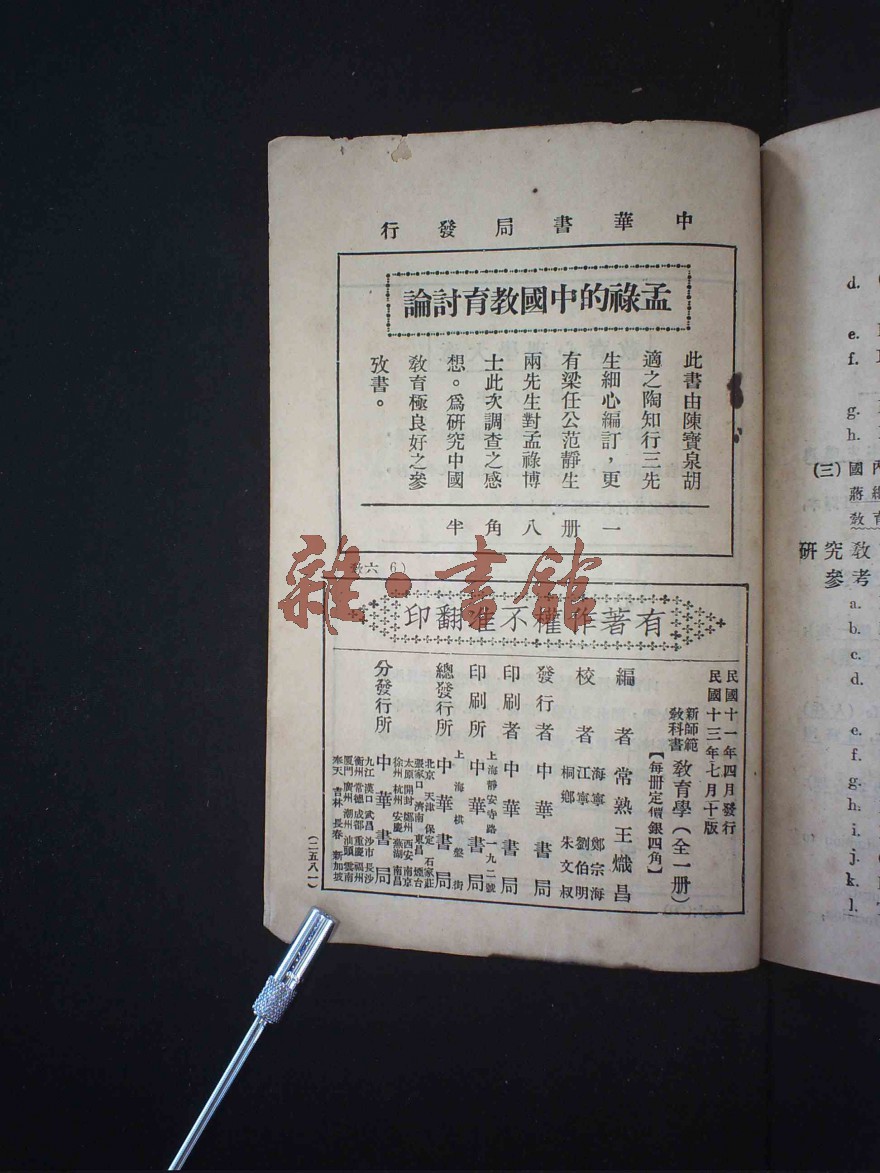 中華書局發行
孟祿的中國教育討論
此書由陳寶泉胡
適之陶知行三先
生細心編訂，更
有梁任公范靜生
兩先生對孟祿博
士此次調查之感
想。爲研究中國
教育極良好之參
攷書。
一册八角半
有著作權不准翻印
民國十一年四月發行
民國十三年七月十版
新師範
教科書
教育學（全一册）
【每册定價銀四角】
編者 常熟王熾昌
校者 海寧 鄭宗海
江寧 劉伯明
桐鄉 朱文叔
發行者 中華書局
印刷者 中華書局
印刷所 上海靜安寺路一九二號
中華書局
總發行所 上海棋盤街
中華書局
分發行所 中華書局
北京 天津 保定 石家莊
張家口 濟南 東昌 煙台
太原 開封 鄭州 西安 南京
徐州 杭州 安慶 蕪湖 南昌
九江 漢口 武昌 沙市 長沙
衡州 常德 成都 重慶 福州
廈門 廣州 潮州 汕頭 雲南
奉天 吉林 長春 新加坡
（二五八一）
雜·書館
d.
e.
f.
g.
h.
（三）國
教育
研究教
參考
a.
b.
c.
d.
e.
f.
g.
h.
i.
j.
k.
l.